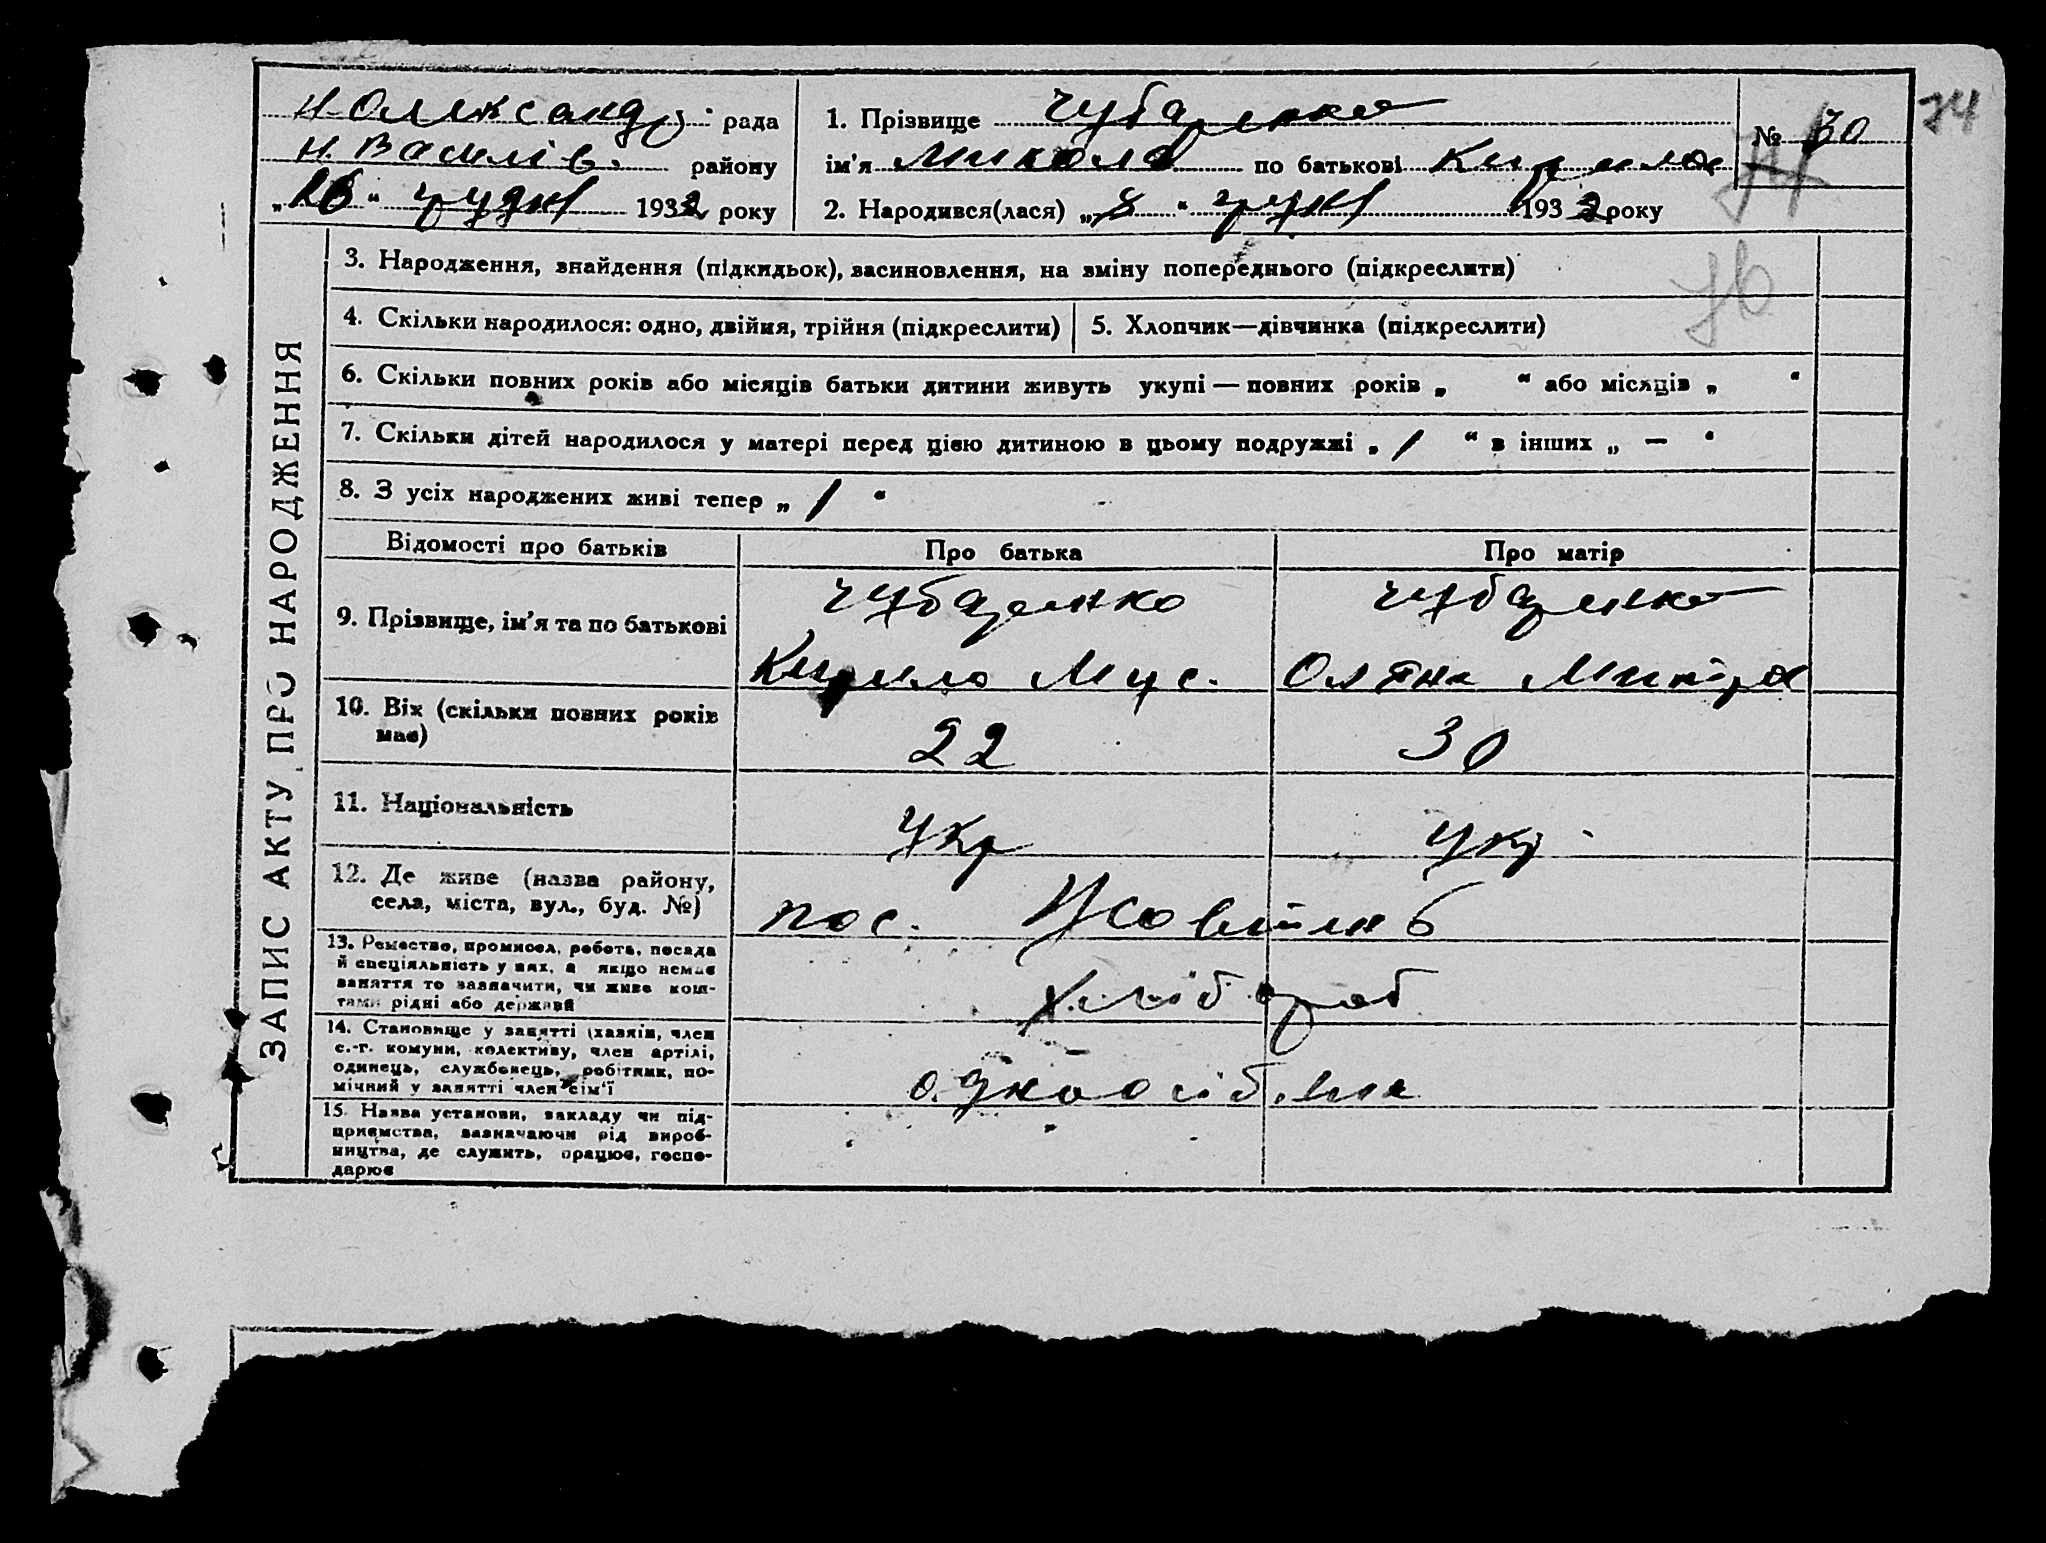 Н-Олександр. рада
Н. Василів. району
„26“ грудня 1932 року
1. Прізвище Чубаренко
ім'я Микола по батькові Кирилов
2. Народився(лася) „8“ грудня 1932 року
№ 70
74
76
ЗАПИС АКТУ ПРО НАРОДЖЕННЯ
3. Народження, знайдення (підкидьок), засиновлення, на зміну попереднього (підкреслити)
4. Скільки народилося: одно, двійня, трійня (підкреслити)
5. Хлопчик—дівчинка (підкреслити)
6. Скільки повних років або місяців батьки дитини живуть укупі — повних років „ “ або місяців „ “
7. Скільки дітей народилося у матері перед цією дитиною в цьому подружжі „ 1 “ в інших „ — “
8. З усіх народжених живі тепер „ 1 “
Відомості про батьків
Про батька
Про матір
9. Прізвище, ім'я та по батькові
Чубаренко
Кирило Мус.
Чубаренко
Оляна
10. Вік (скільки повних років
має)
22
30
11. Національність
Укр
укр.
12. Де живе (назва району,
села, міста, вул., буд. №)
пос. Жовтень
13. Ремество, промисел, робота, посада
й спеціяльність у них, а якщо немає
заняття то зазначити, чи живе кош-
тами рідні або держави
Хлібороб
14. Становище у занятті (хазяїн, член
с.-г. комуни, колективу, член артілі,
одинець, службовець, робітник, по-
мічний у занятті член сім'ї
одноосібник
15. Назва установи, закладу чи під-
приємства, зазначаючи рід вироб-
ництва, де служить, працює, госпо-
дарює